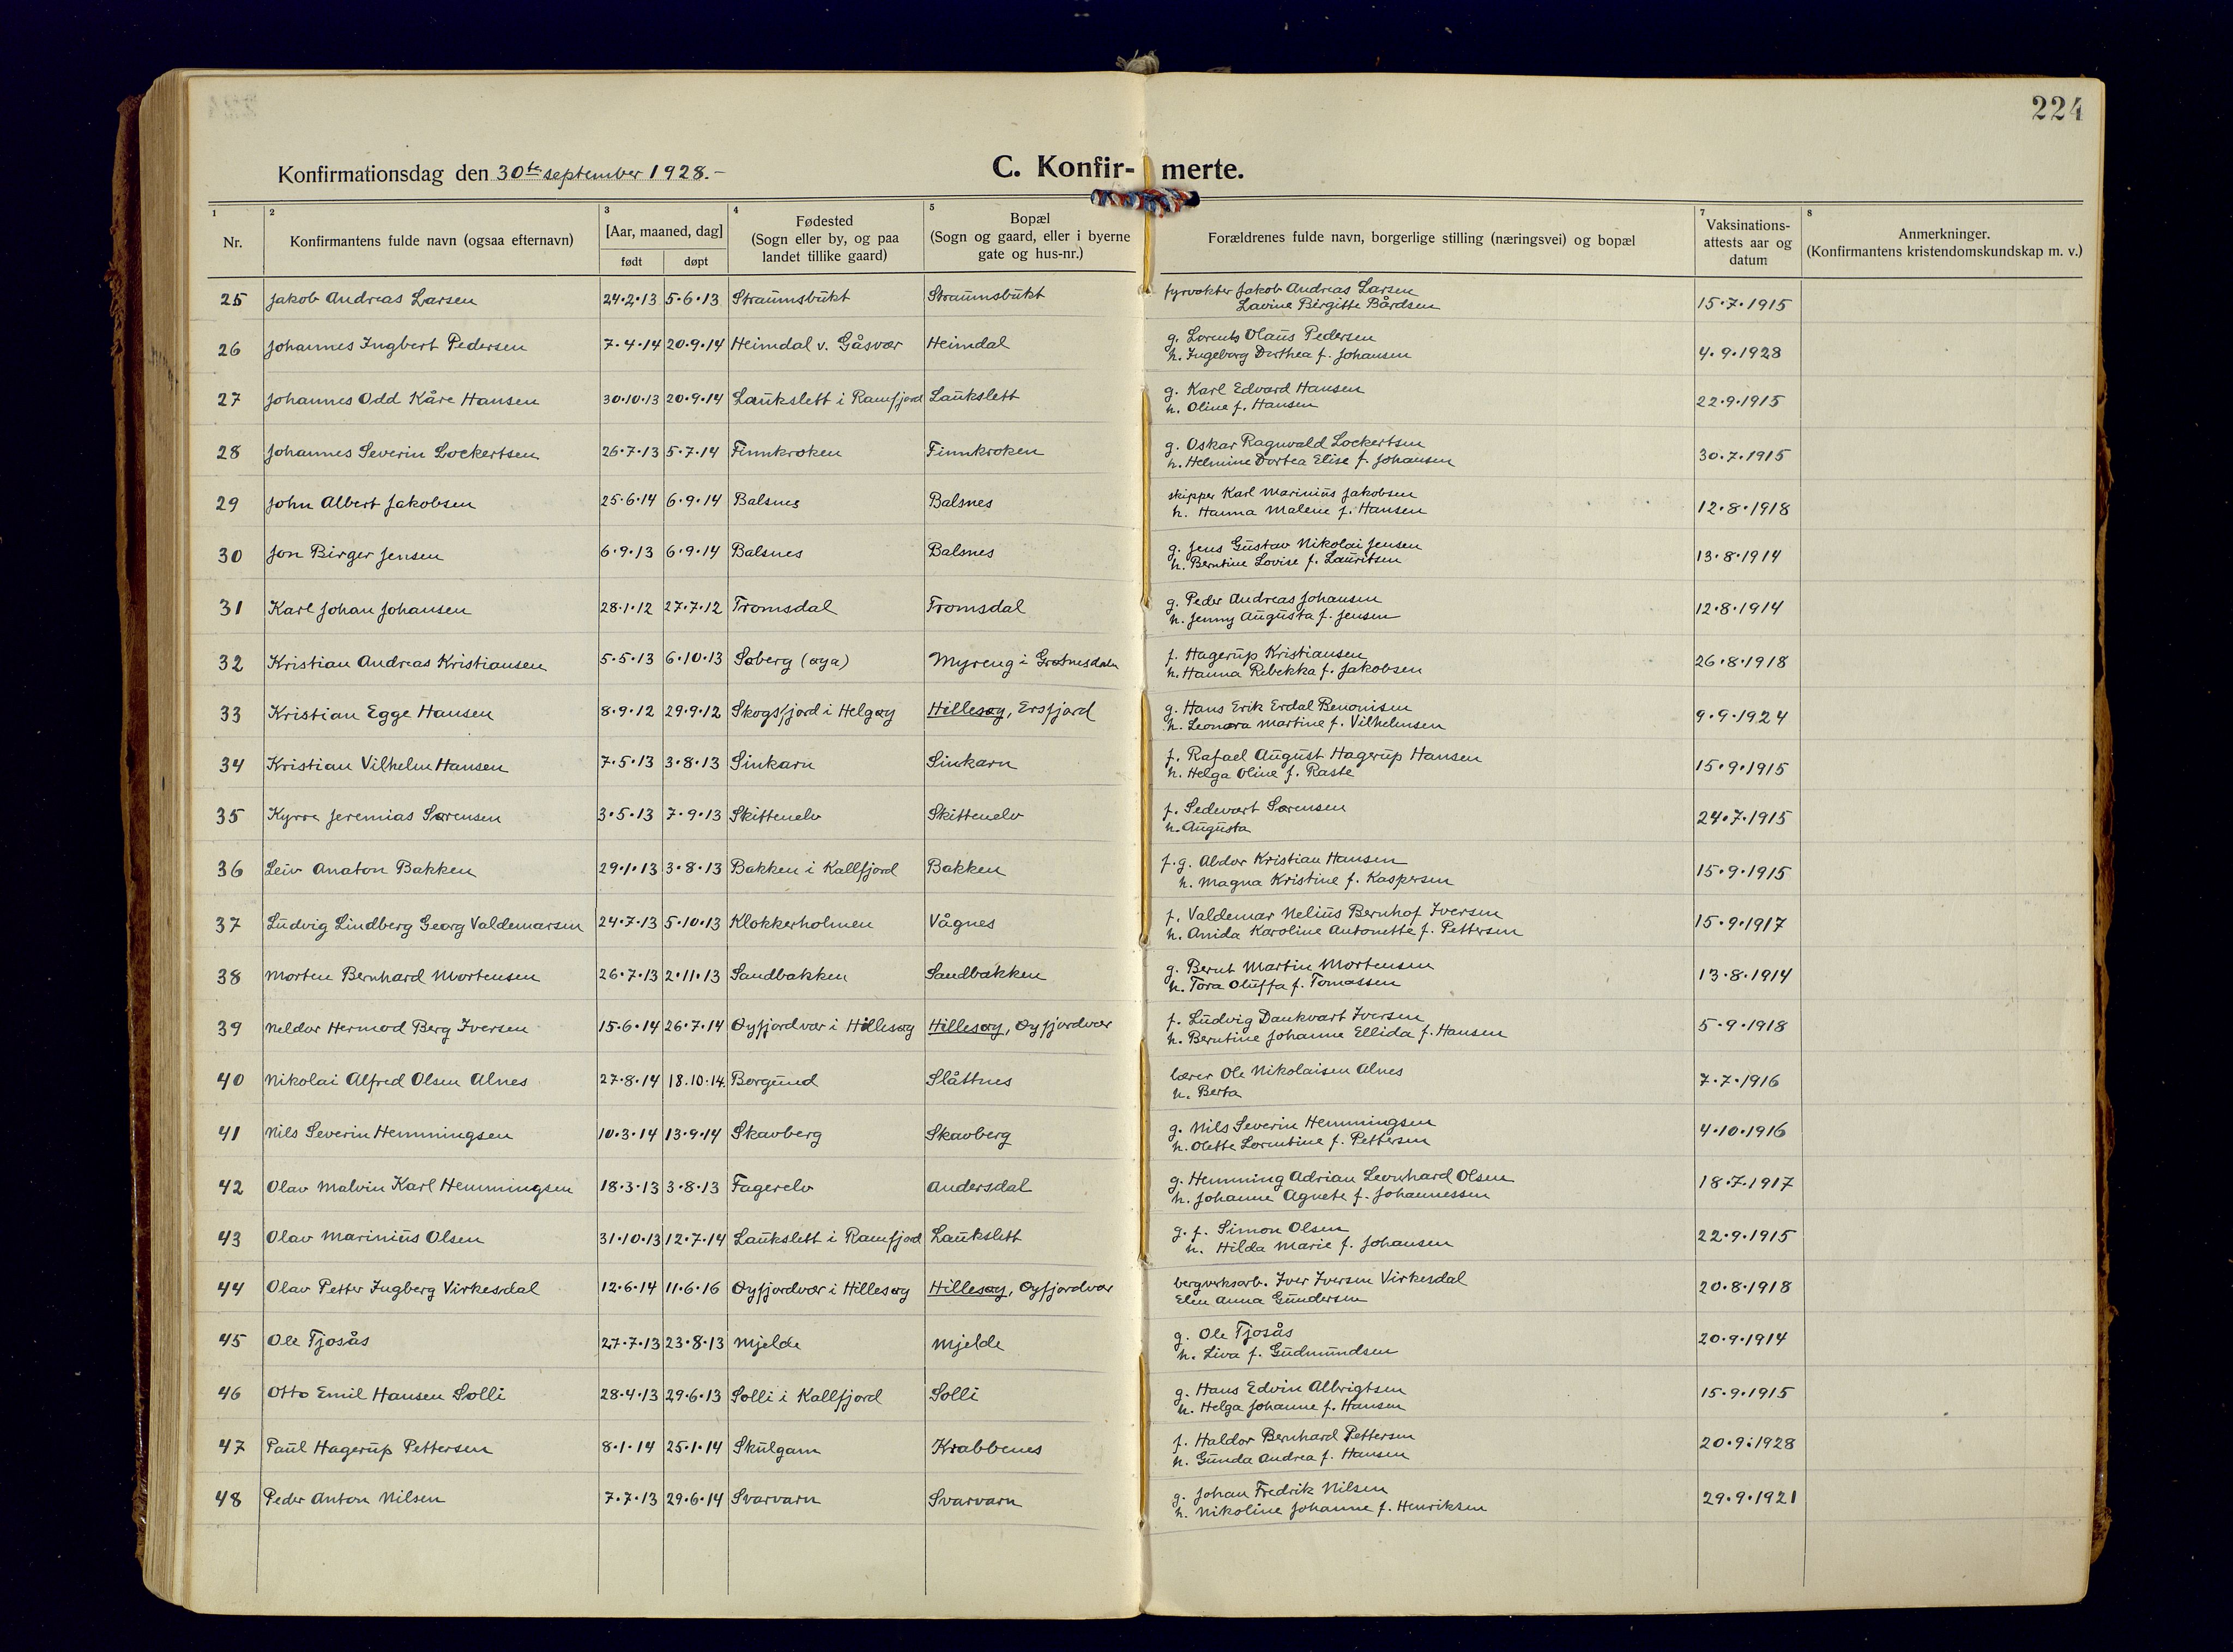 224
Konfirmationsdag den 30te september 1928.-
C. Konfir- merte.
1 2 3 4 5 7 8
Nr.
Konfirmantens fulde navn (ogsaa efternavn)
[Aar, maaned, dag]
født døpt
Fødested
(Sogn eller by, og paa
landet tillike gaard)
Bopæl
(Sogn og gaard, eller i byerne
gate og hus-nr.)
Forældrenes fulde navn, borgerlige stilling (næringsvei) og bopæl
Vaksinations-
attests aar og
datum
Anmerkninger.
(Konfirmantens kristendomskundskap m. v.)
25 Jakob Andreas Larsen 24.2.13 5.6.13 Straumsbukt Straumsbukt fyrvokter Jakob Andreas Larsen 15.7.1915
Lavine Birgitte Bårdsen
26 Johannes Ingbert Pedersen 7.4.14 20.9.14 Heimdal v. Gåsvær Heimdal g. Lorents Olaus Pedersen 4.9.1928
h. Ingeborg Dorthea f. Johansen
27 Johannes Odd Kåre Hansen 30.10.13 20.9.14 Laukslett i Ramfjord Laukslett g. Karl Edvard Hansen 22.9.1915
h. Oline f. Hansen
28 Johannes Severin Lockertsen 26.7.13 5.7.14 Finnkroken Finnkroken g. Oskar Ragnvald Lockertsen 30.7.1915
h. Helmine Dortea Elise f. Johansen
29 John Albert Jakobsen 25.6.14 6.9.14 Balsnes Balsnes skipper Karl Marinius Jakobsen 12.8.1918
h. Hanna Malene f. Hansen
30 Jon Birger Jensen 6.9.13 6.9.14 Balsnes Balsnes g. Jens Gustav Nikolai Jensen 13.8.1914
h. Berntine Lovise f. Lauritsen
31 Karl Johan Johansen 28.1.12 27.7.12 Tromsdal Tromsdal g. Peder Andreas Johansen 12.8.1914
h. Jenny Augusta f. Jensen
32 Kristian Andreas Kristiansen 5.5.13 6.10.13 Søberg (øya) Myreng i Grøtnesdalen f. Hagerup Kristiansen 26.8.1918
h. Hanna Rebekka f. Jakobsen
33 Kristian Egge Hansen 8.9.12 29.9.12 Skogsfjord i Helgøy Hillesøy, Ersfjord g. Hans Erik Erdal Benonisen 9.9.1924
h. Leonora Martine f. Vilhelmsen
34 Kristian Vilhelm Hansen 7.5.13 3.8.13 Sinkarn Sinkarn f. Rafael August Hagerup Hansen 15.9.1915
h. Helga Oline f. Raste
35 Kyrre Jeremias Sørensen 3.5.13 7.9.13 Skittenelv Skittenelv f. Sedevart Sørensen 24.7.1915
h. Augusta
36 Leiv Anaton Bakken 29.1.13 3.8.13 Bakken i Kallfjord Bakken f.g. Aldor Kristian Hansen 15.9.1915
h. Magna Kristine f. Kaspersen
37 Ludvig Lindberg Georg Valdemarsen 24.7.13 5.10.13 Klokkerholmen Vågnes f. Valdemar Nelius Bernhof Iversen 15.9.1917
h. Anida Karoline Antonette f. Pettersen
38 Morten Bernhard Mortensen 26.7.13 2.11.13 Sandbakken Sandbakken g. Bernt Martin Mortensen 13.8.1914
h. Tora Oluffa f. Tomassen
39 Neldor Hermod Berg Iversen 15.6.14 26.7.14 Øyfjordvær i Hillesøy Hillesøy, Øyfjordvær f. Ludvig Dankvart Iversen 5.9.1918
h. Berntine Johanne Ellida f. Hansen
40 Nikolai Alfred Olsen Alnes 27.8.14 18.10.14. Borgund Slåttnes lærer Ole Nikolaisen Alnes 7.7.1916
h. Berta
41 Nils Severin Hemmingsen 10.3.14 13.9.14 Skavberg Skavberg g. Nils Severin Hemmingsen 4.10.1916
h. Olette Lorentine f. Pettersen
42 Olav Malvin Karl Hemmingsen 18.3.13 3.8.13 Fagerelv Andersdal g. Hemming Adrian Leonhard Olsen 18.7.1917
h. Johanne Agnete f. Johannessen
43 Olav Marinius Olsen 31.10.13 12.7.14 Laukslett i Ramfjord Laukslett g. f. Simon Olsen 22.9.1915
h. Hilda Marie f. Johansen
44 Olav Petter Ingberg Virkesdal 12.6.14 11.6.16 Øyfjordvær i Hillesøy Hillesøy, Øyfjordvær bergverksarb. Iver Iversen Virkesdal 20.8.1918
Elen Anna Gundersen
45 Ole Tjosås 27.7.13 23.8.13 Mjelde Mjelde g. Ole Tjosås 20.9.1914
h. Liva f. Gudmundsen
46 Otto Emil Hansen Solli 28.4.13 29.6.13 Solli i Kallfjord Solli g. Hans Edvin Albrigtsen 15.9.1915
h. Helga Johanne f. Hansen
47 Paul Hagerup Pettersen 8.1.14 25.1.14 Skulgam Krabbenes f. Haldor Bernhard Pettersen 20.9.1928
h. Gunda Andrea f. Hansen
48 Peder Anton Nilsen 7.7.13 29.6.14 Svarvarn Svarvarn g. Johan Fredrik Nilsen 29.9.1921
h. Nikoline Johanne f. Henriksen